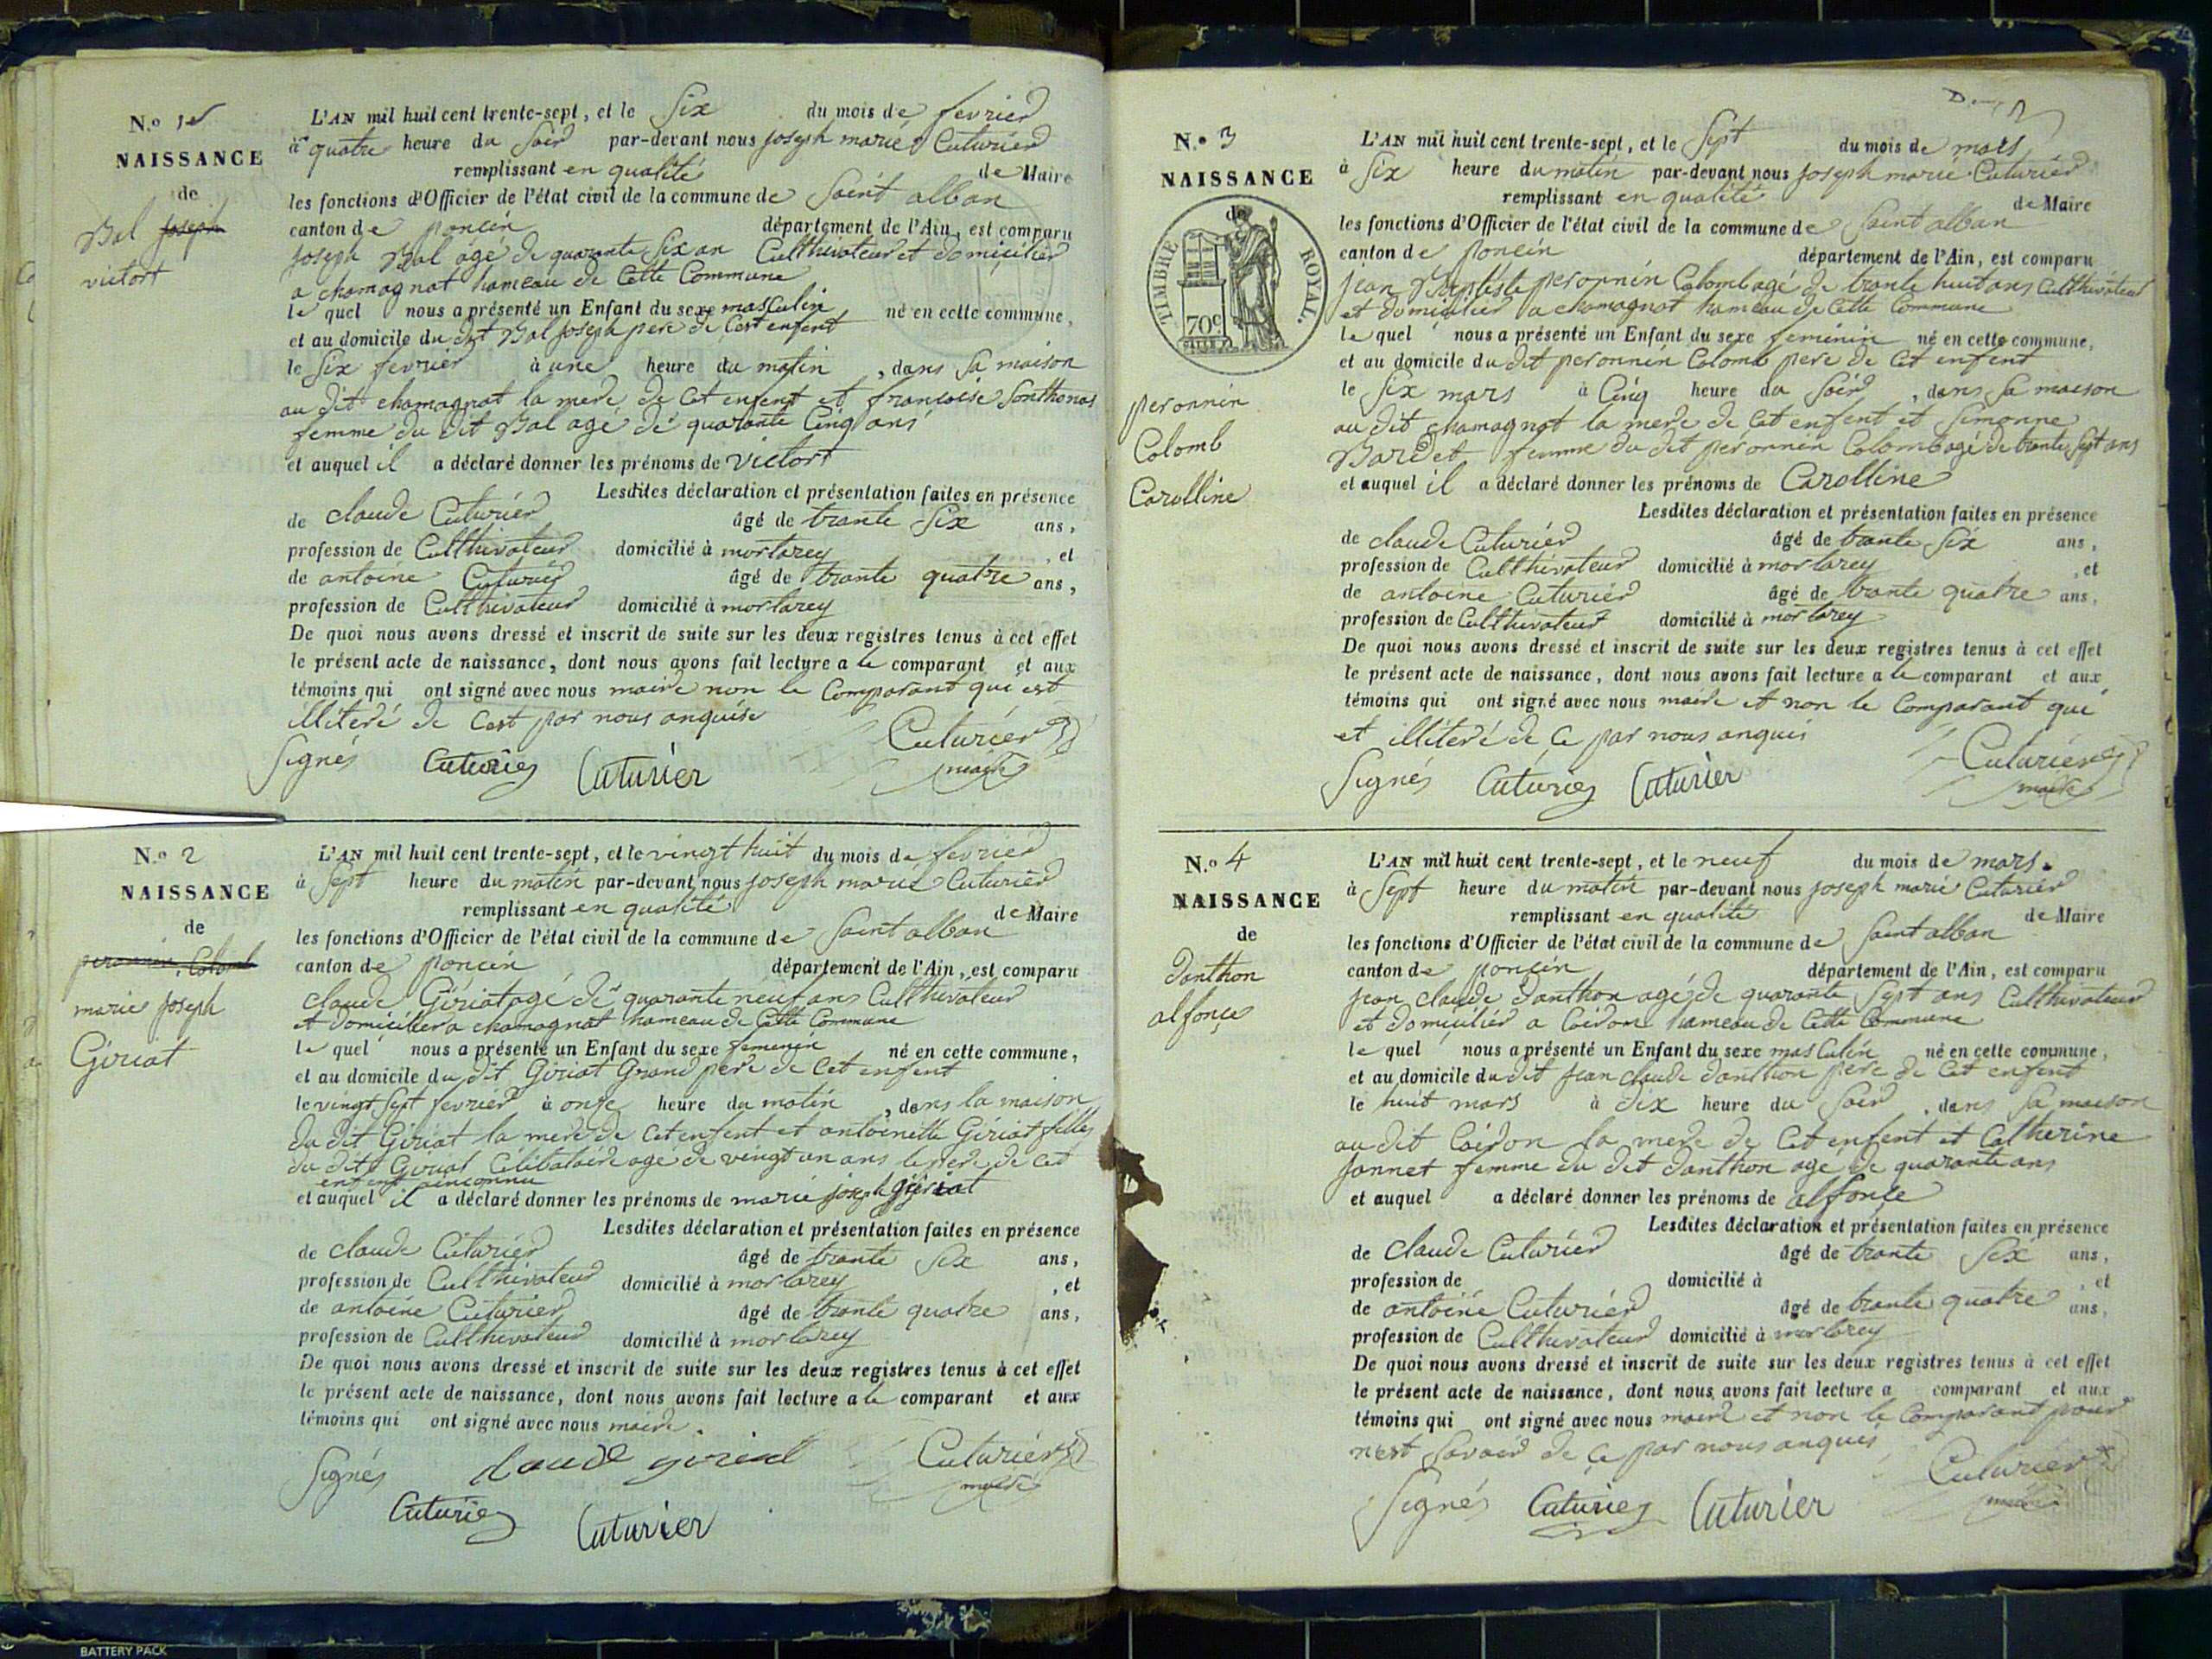 N.o 1er
NAISSANCE
de
Bal Joseph
victort
L'AN mil huit cent trente-sept, et le Six du mois de fevrier
à quatre heure du Soir par-devant nous joseph marie Cuturier
remplissant en qualité de Maire
les fonctions d'Officier de l'état civil de la commune de Saint alban
canton de poncin département de l'Ain, est comparu
joseph Bal agé de quarante Six an Culthivateur et domicilier
a chamagnat hameau de Cette Commune
le quel nous a présenté un Enfant du sexe masculin né en cette commune,
et au domicile du dit Bal joseph pere de Cest enfent
le Six fevrier à une heure du matin, dans Sa maison
au dit chamagnat la mere de Cet enfent et francoise Sonthonas
femme du dit Bal agé de quarante Cinq ans
et auquel il a déclaré donner les prénoms de victort
Lesdites déclaration et présentation faites en présence
de claude Cuturier âgé de trante Six ans,
profession de Culthivateur domicilié à mortarey, et
de antoine Cuturier âgé de trante quatre ans,
profession de Culthivateur domicilié à mortarey
De quoi nous avons dressé et inscrit de suite sur les deux registres tenus à cet effet
le présent acte de naissance, dont nous avons fait lecture a le comparant et aux
témoins qui ont signé avec nous maire non le Comparant qui est
illiteré de Cest par nous anquise
Signés Cuturier Cuturier Cuturier
maire
N.o 2
NAISSANCE
de
peronnin Colomb
marie joseph
Giriat
L'AN mil huit cent trente-sept, et le vingt huit du mois de fevrier
à Sept heure du matin par-devant nous joseph marie Cuturier
remplissant en qualité de Maire
les fonctions d'Officier de l'état civil de la commune de Saint alban
canton de poncin département de l'Ain, est comparu
claude Giriat agé de quarante neuf ans Culthivateur
et domicilier a chamagnat hameau de Cette Commune
le quel nous a présenté un Enfant du sexe femenin né en cette commune,
et au domicile du dit Giriat Grand pere de Cet enfent
le vingt Sept fevrier à onze heure du matin, dans la maison
du dit Giriat la mere de Cet enfent et antoinette Giriat filles
du dit Giriat Célibataire agé de vingt un ans le pere de Cet
enfent ainconnu
et auquel il a déclaré donner les prénoms de marie joseph Giriat
Lesdites déclaration et présentation faites en présence
de claude Cuturier âgé de trante Six ans,
profession de Culthivateur domicilié à mortarey, et
de antoine Cuturier âgé de trante quatre ans,
profession de Culthivateur domicilié à mortarey
De quoi nous avons dressé et inscrit de suite sur les deux registres tenus à cet effet
le présent acte de naissance, dont nous avons fait lecture a le comparant et aux
témoins qui ont signé avec nous maire.
Signés claude giriat Cuturier
maire
Cuturier Cuturier
N.o 3
NAISSANCE
de
TIMBRE ROYAL.
70c
peronnin
Colomb
Carolline
L'AN mil huit cent trente-sept, et le Sept du mois de mars
à Six heure du matin par-devant nous joseph marie Cuturier
remplissant en qualité de Maire
les fonctions d'Officier de l'état civil de la commune de Saint alban
canton de poncin département de l'Ain, est comparu
jean Baptiste peronnin Colomb agé de trante huit ans Culthivateur
et domicilier a chamagnat hameau de Cette Commune
le quel nous a présenté un Enfant du sexe feminin né en cette commune,
et au domicile du dit peronnin Colomb pere de Cet enfent
le Six mars à Cinq heure du Soir, dans Sa maison
au dit chamagnat la mere de Cet enfent et Simonne
Bardet femme du dit peronnin Colomb agé de trante Sept ans
et auquel il a déclaré donner les prénoms de Carolline
Lesdites déclaration et présentation faites en présence
de claude Cuturier âgé de trante Six ans,
profession de Culthivateur domicilié à mortarey, et
de antoine Cuturier âgé de trante quatre ans,
profession de Culthivateur domicilié à mortarey
De quoi nous avons dressé et inscrit de suite sur les deux registres tenus à cet effet
le présent acte de naissance, dont nous avons fait lecture a le comparant et aux
témoins qui ont signé avec nous maire et non le Comparant qui
et illiteré de Ce par nous anquis
Signés Cuturier Cuturier Cuturier
maire
N.o 4
NAISSANCE
de
Danthon
alfonçe
L'AN mil huit cent trente-sept, et le neuf du mois de mars.
à Sept heure du matin par-devant nous joseph marie Cuturier
remplissant en qualité de Maire
les fonctions d'Officier de l'état civil de la commune de Saint alban
canton de poncin département de l'Ain, est comparu
jean claude Danthon agé de quarante Sept ans Culthivateur
et domicilier a Coiron hameau de Cette Commune
le quel nous a présenté un Enfant du sexe masculin né en cette commune,
et au domicile du dit jean claude Danthon pere de Cet enfent
le huit mars à dix heure du Soir, dans Sa maison
au dit Coiron la mere de Cet enfent et Catherine
jonnet femme du dit Danthon agé de quarante ans
et auquel a déclaré donner les prénoms de alfonçe
Lesdites déclaration et présentation faites en présence
de claude Cuturier âgé de trante Six ans,
profession de domicilié à, et
de antoine Cuturier âgé de trante quatre ans,
profession de Culthivateur domicilié à mortarey
De quoi nous avons dressé et inscrit de suite sur les deux registres tenus à cet effet
le présent acte de naissance, dont nous avons fait lecture a comparant et aux
témoins qui ont signé avec nous maire et non le Comparant pour
n'est Savoir de Ce par nous anquis
Signés Cuturier Cuturier Cuturier
maire
BATTERY PACK